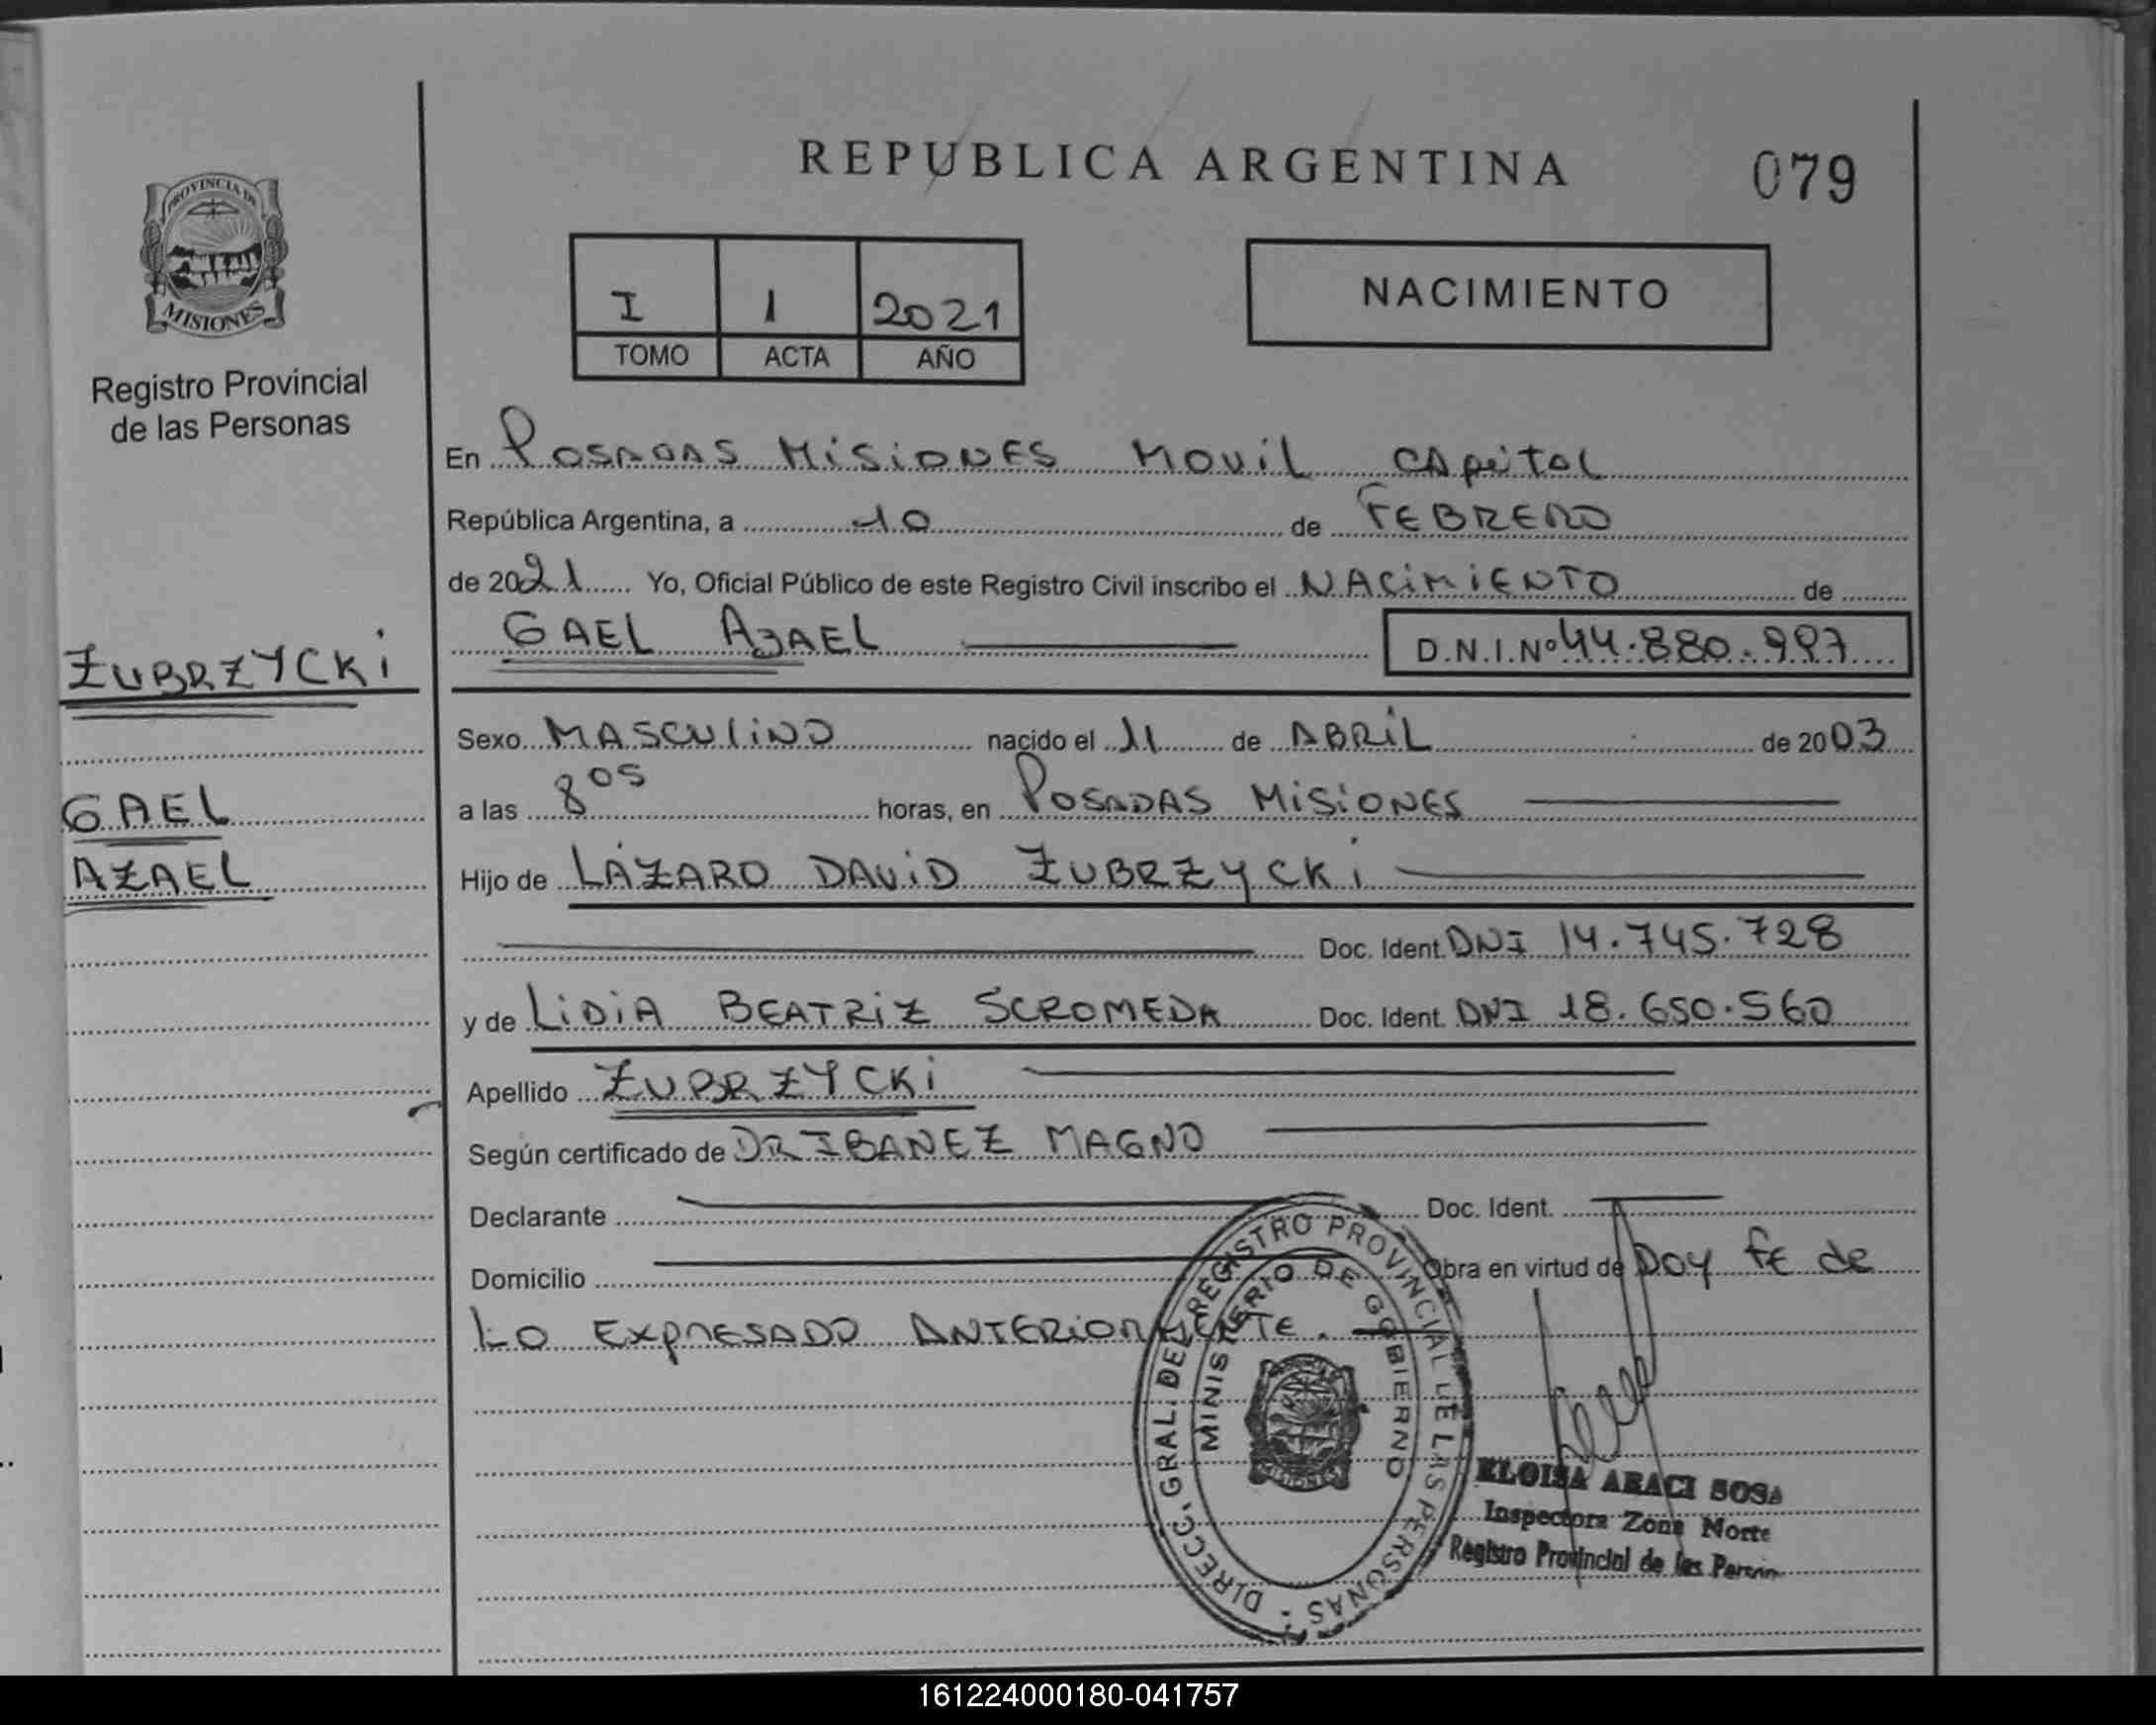 REPUBLICA ARGENTINA
079
PROVINCIA DE
MISIONES
Registro Provincial
de las Personas
I 1 2021
TOMO ACTA AÑO
NACIMIENTO
En Posadas Misiones Movil Capital
República Argentina, a 10 de FEBRERO
de 2021 Yo, Oficial Público de este Registro Civil inscribo el NACIMIENTO de
GAEL AZAEL D.N.I.Nº 44.880.997
ZUBRZYCKI
GAEL
AZAEL
Sexo MASCULINO nacido el 11 de ABRIL de 2003
a las 8 05 horas, en POSADAS MISIONES
Hijo de LÁZARO DAVID ZUBRZYCKI
Doc. Ident. DNI 14.745.728
y de LIDIA BEATRIZ SCROMEDA Doc. Ident. DNI 18.650.560
Apellido ZUBRZYCKI
Según certificado de DR IBANEZ MAGNO
Declarante Doc. Ident.
Domicilio Obra en virtud de DOY FE de
LO EXPRESADO ANTERIORMENTE.
DIRECC. GRAL. DEL REGISTRO PROVINCIAL DE LAS PERSONAS
MINISTERIO DE GOBIERNO
MISIONES
ELOISA ARACI SOSA
Inspectora Zona Norte
Registro Provincial de las Person
161224000180-041757